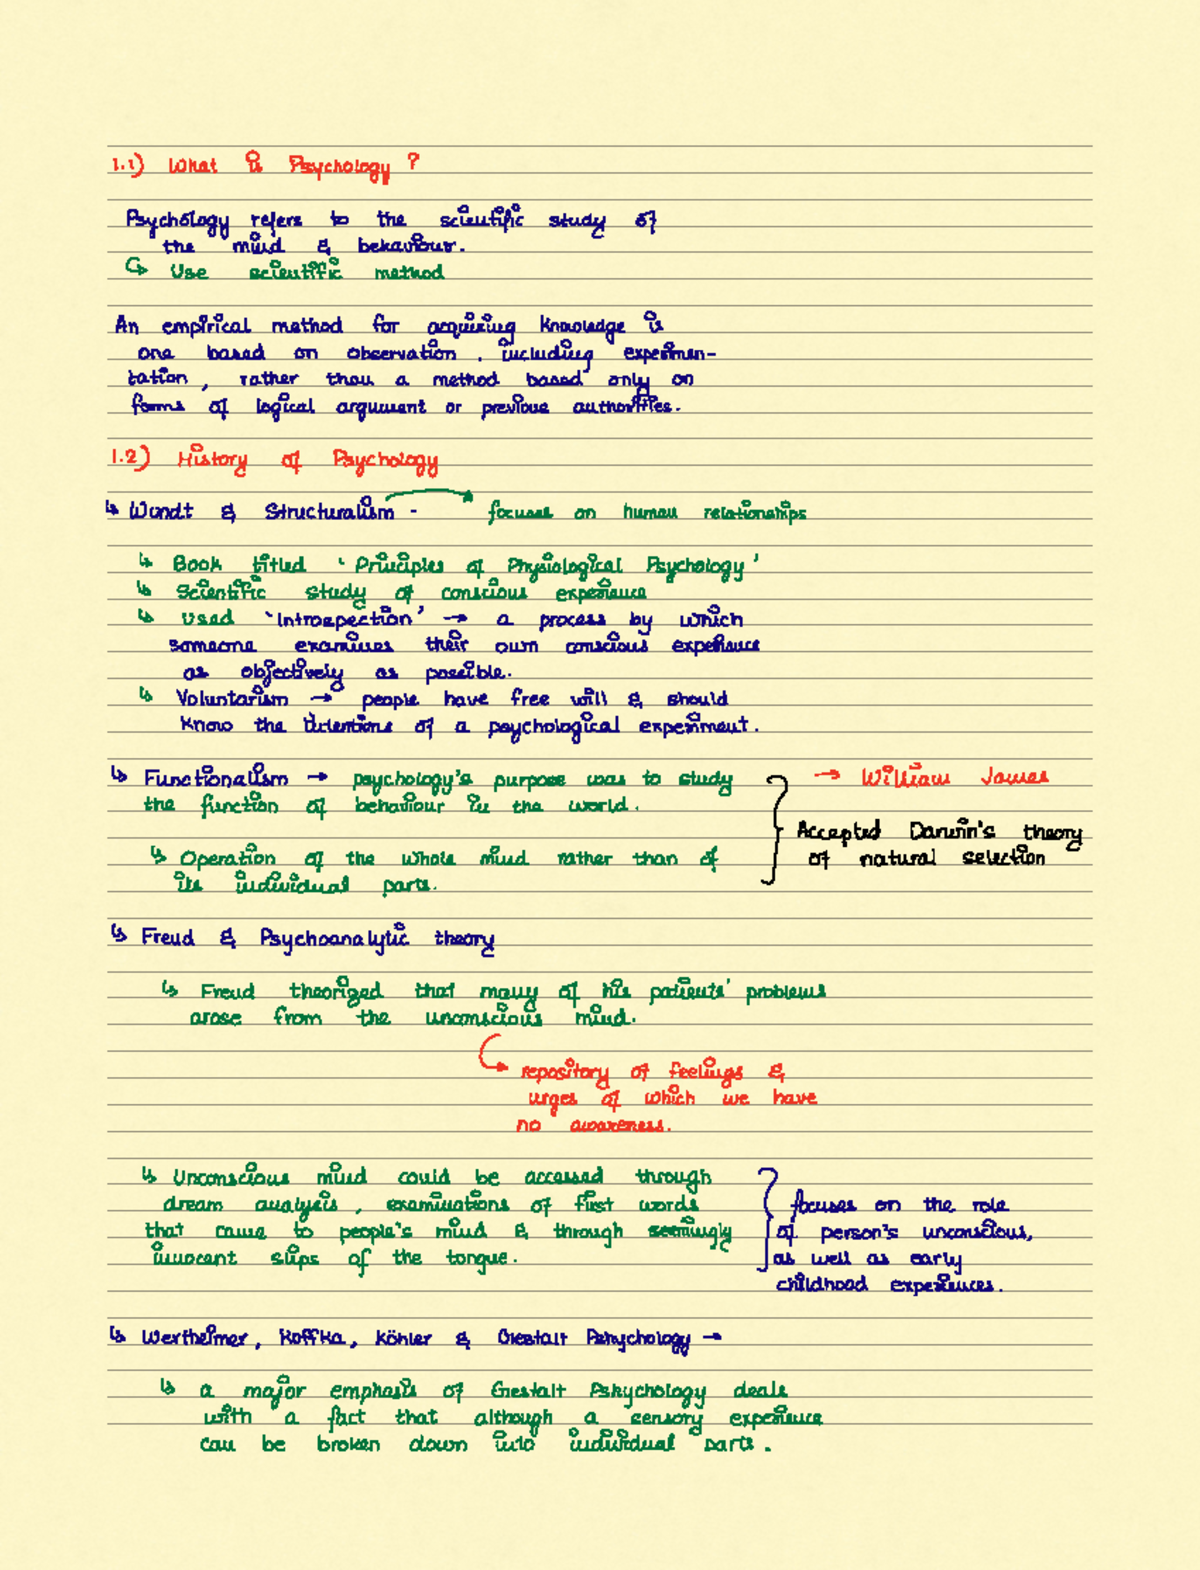 1.1) What is Psychology ?
Psychology refers to the scientific study of
the mind & behaviour.
↳ Use scientific method
An empirical method for acquiring knowledge is
one based on observation , including experimen-
tation , rather than a method based only on
forms of logical argument or previous authorities.
1.2) History of Psychology
↳ Wundt & Structuralism - focuses on human relationships
↳ Book titled ' Principles of Physiological Psychology '
↳ Scientific study of conscious experience
↳ Used 'Introspection' → a process by which
someone examines their own conscious experience
as objectively as possible.
↳ Voluntarism → people have free will & should
know the intentions of a psychological experiment.
↳ Functionalism → psychology's purpose was to study
the function of behaviour in the world.
↳ Operation of the whole mind rather than of
its individual parts.
→ William James
Accepted Darwin's theory
of natural selection
↳ Freud & Psychoanalytic theory
↳ Freud theorized that many of his patients' problems
arose from the unconscious mind.
↳ repository of feelings &
urges of which we have
no awareness.
↳ Unconscious mind could be accessed through
dream analysis , examinations of first words
that came to people's mind & through seemingly
innocent slips of the tongue.
focuses on the role
of person's unconscious,
as well as early
childhood experiences.
↳ Wertheimer, Koffka, Köhler & Gestalt Pshychology →
↳ a major emphasis of Gestalt Pshychology deals
with a fact that although a sensory experience
can be broken down into individual parts .